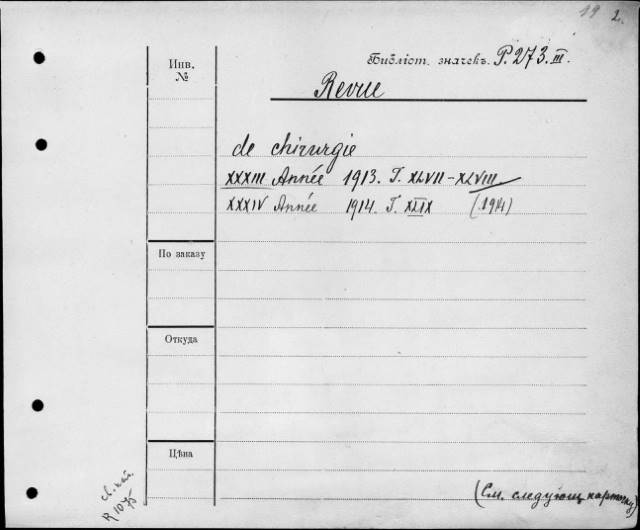 19 2.
Инв.
№
Библіот. значекъ. P. 273. III.
Revue
de chirurgie
XXXIII Année 1913. T. XLVII-XLVIII.
XXXIV Année 1914. T. XLIX (1914)
По заказу
Откуда
Цѣна
R 1075
(См. следующ карточку)